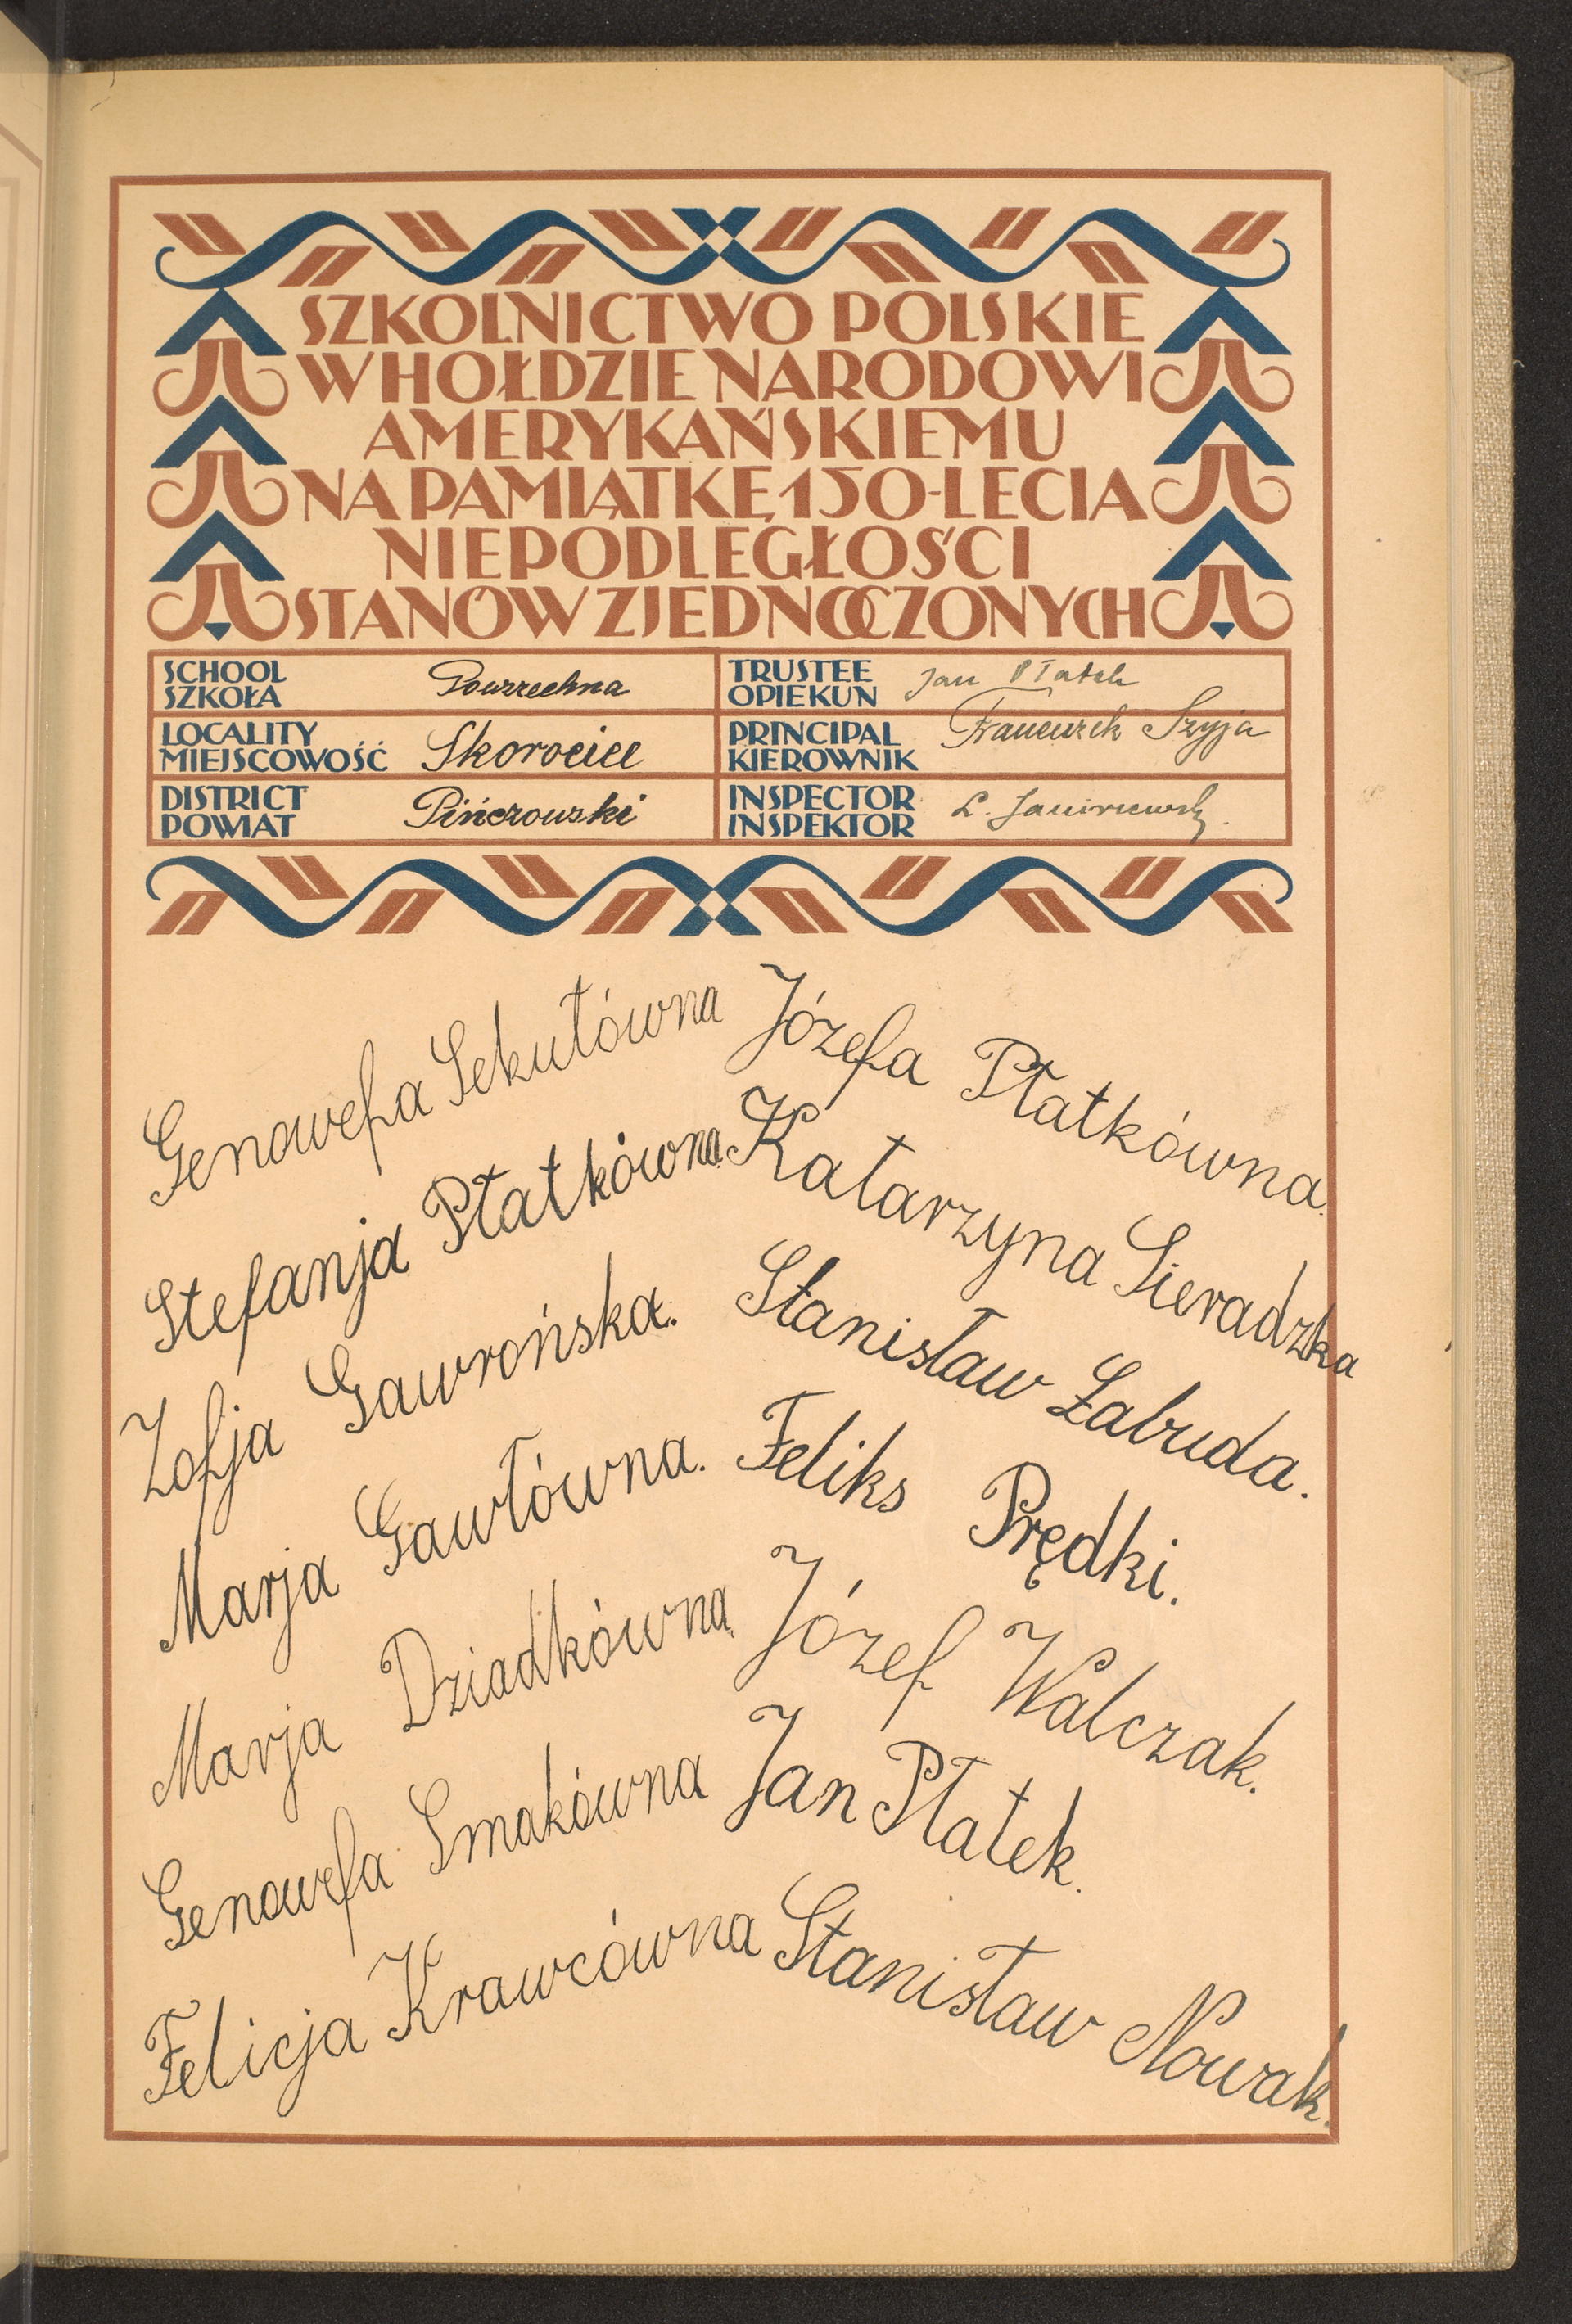 SZKOLNICTWO POLSKIE
W HOŁDZIE NARODOWI
AMERYKAŃSKIEMU
NA PAMIĄTKĘ 150-LECIA
NIEPODLEGŁOŚCI
STANÓW ZJEDNOCZONYCH
SCHOOL
SZKOŁA
Powszechna
TRUSTEE
OPIEKUN
Jan Płatek
LOCALITY
MIEJSCOWOŚĆ
Skorocice
PRINCIPAL
KIEROWNIK
Franciszek Szyja
DISTRICT
POWIAT
Pińczowski
INSPECTOR
INSPEKTOR
L.
Genowefa Sekułówna
Stefanja Płatkówna
Zofja Gawrońska.
Marja Gawłówna.
Marja Dziadkówna
Genowefa Smakówna
Felicja Krawcówna
Józefa Płatkówna.
Katarzyna Sieradzka
Stanisław Łabuda.
Feliks Prędki.
Józef Walczak.
Jan Płatek.
Stanisław Nowak.